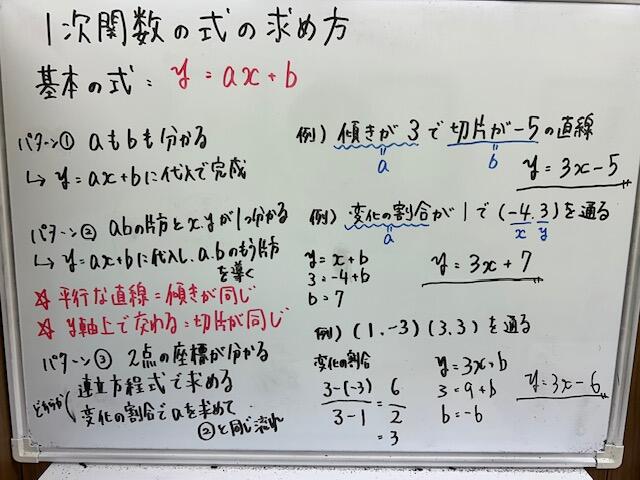 1次関数の式の求め方
基本の式: y = ax + b
パターン① aもbも分かる
↳ y=ax+bに代入で完成
例) 傾きが3で切片が-5の直線
a b
y=3x-5
パターン② abの片方とx.yが1つ分かる
↳ y=ax+bに代入し、a.bのもう片方
を導く
☆ 平行な直線=傾きが同じ
☆ y軸上で交わる=切片が同じ
例) 変化の割合が1で(-4.3)を通る
a x y
y=x+b
3=-4+b
b=7
y=3x+7
パターン③ 2点の座標が分かる
どちらか
連立方程式で求める
変化の割合でaを求めて
②と同じ流れ
例) (1.-3)(3.3)を通る
変化の割合
3-(-3)/3-1 = 6/2
=3
y=3x+b
3=9+b
b=-6
y=3x-6